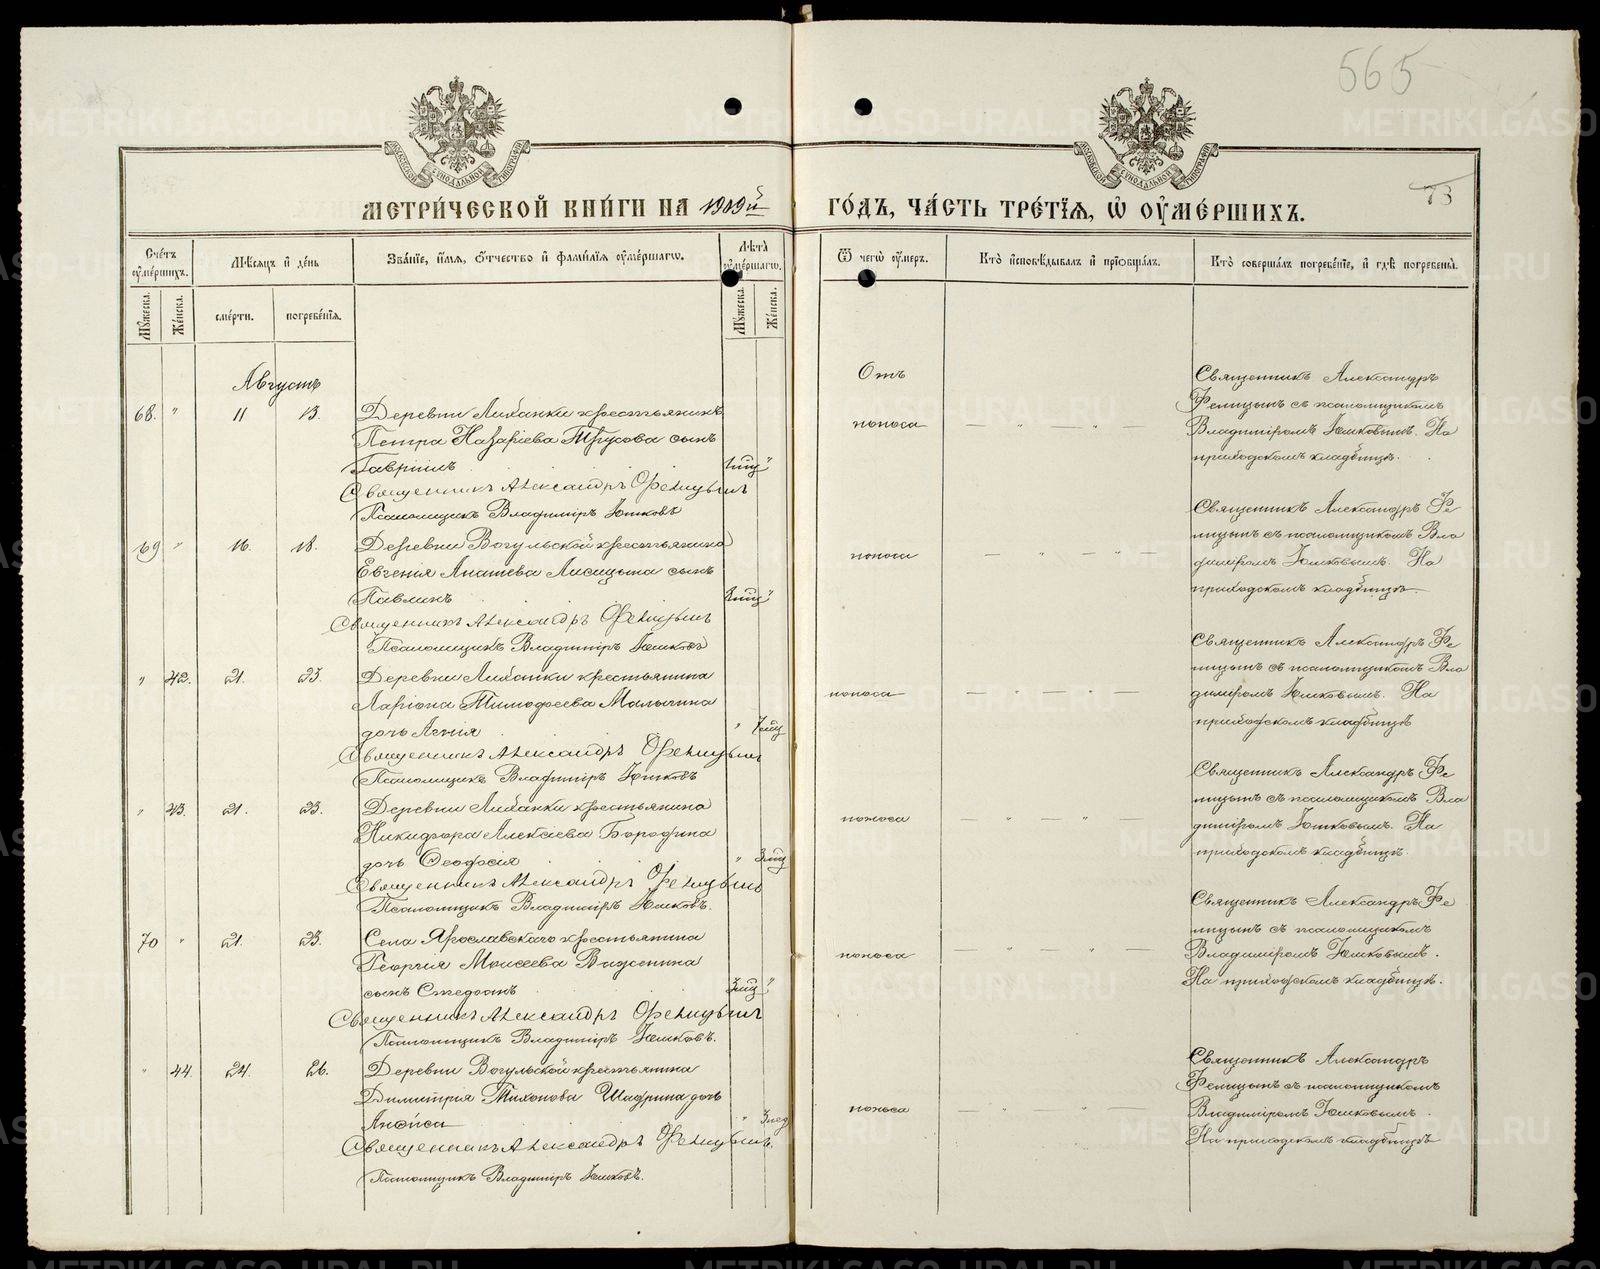 565
73
МЕТРИ́ЧЕСКОЙ КНИ́ГИ НА 1909й
ГО́ДЪ, ЧА́СТЬ ТРЕ́ТЇѦ, Ѡ҆ ОУ҆МЕ́РШИХЪ.
Сче́тъ оу҆ме́ршихъ.
Мѣ́сѧцъ и҆ де́нь
Зва́нїе, и҆́мѧ, ѻ҆́тчество и҆ фами́лїѧ оу҆ме́ршагѡ.
Лѣ́та оу҆ме́ршагѡ.
Ѿ чегѡ̀ оу҆́меръ.
Кто̀ и҆сповѣ́дывалъ и҆ прїѻбща́лъ.
Кто̀ соверша́лъ погребе́нїе, и҆ гдѣ̀ погребены̀.
Мꙋ́жеска.
Же́нска.
сме́рти.
погребе́нїѧ.
Мꙋ́жеска.
Же́нска.
Августъ
68. " 11 13. Деревни Лиханки крестьянинъ
Петра Назаріева Трусова сынъ
Гавріилъ 1мц "
Священникъ Александръ Феницынъ
Псаломщикъ Владиміръ Юшковъ
Отъ
поноса — " — " —
Священникъ Александръ
Феницынъ съ псаломщикомъ
Владиміромъ Юшковымъ. На
приходскомъ кладбищѣ.
69 " 16. 18. Деревни Вогульской крестьянина
Евгенія Лисицына сынъ
Павлинъ "
Священникъ Александръ Феницынъ
Псаломщикъ Владиміръ Юшковъ
поноса — " — " —
Священникъ Александръ Фе
ницынъ съ псаломщикомъ Вла
диміромъ Юшковымъ. На
приходскомъ кладбищѣ.
" 42. 21. 23. Деревни Лиханки крестьянина
Ларіона Тимофеева Малыгина
дочь "
Священникъ Александръ Феницынъ
Псаломщикъ Владиміръ Юшковъ
поноса — " — " —
Священникъ Александръ Фе
ницынъ съ псаломщикомъ Вла
диміромъ Юшковымъ. На
приходскомъ кладбищѣ
" 43. 21. 23. Деревни Лиханки крестьянина
Никифора Алексіева Бородина
дочь Ѳеодосія " 3мц
Священникъ Александръ Феницынъ
Псаломщикъ Владиміръ Юшковъ.
поноса — " — " —
Священникъ Александръ Фе
ницынъ съ псаломщикомъ Вла
диміромъ Юшковымъ. На
приходскомъ кладбищѣ.
70 " 21. 23. Села Ярославскаго крестьянина
Георгія Моисеева сынъ 3мц "
Священникъ Александръ Феницынъ
Псаломщикъ Владиміръ Юшковъ.
поноса — " — " —
Священникъ Александръ Фе
ницынъ съ псаломщикомъ
Владиміромъ Юшковымъ.
На приходскомъ кладбищѣ.
" 44. 24. 26. Деревни Вогульской крестьянина
Димитрія Тихонова Шадрина дочь
Анѳиса " 3нед
Священникъ Александръ Феницынъ.
Псаломщикъ Владиміръ Юшковъ.
поноса — " — " —
Священникъ Александръ
Феницынъ съ псаломщикомъ
Владиміромъ Юшковымъ.
На приходскомъ кладбищѣ
METRIKI.GASO-URAL.RU